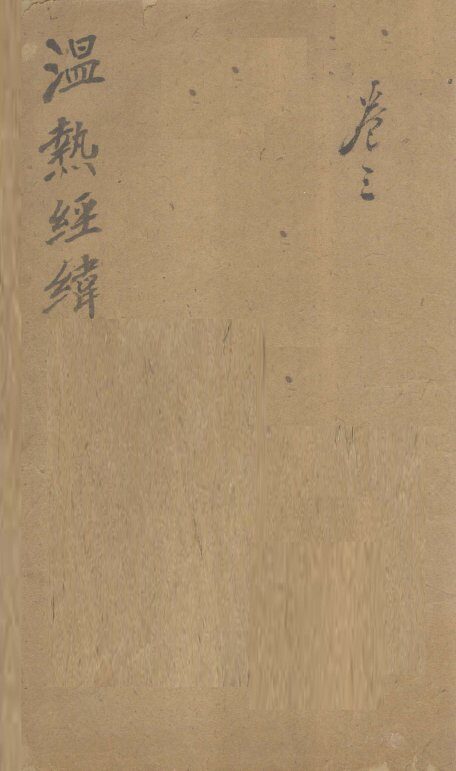 卷三
温熱經緯